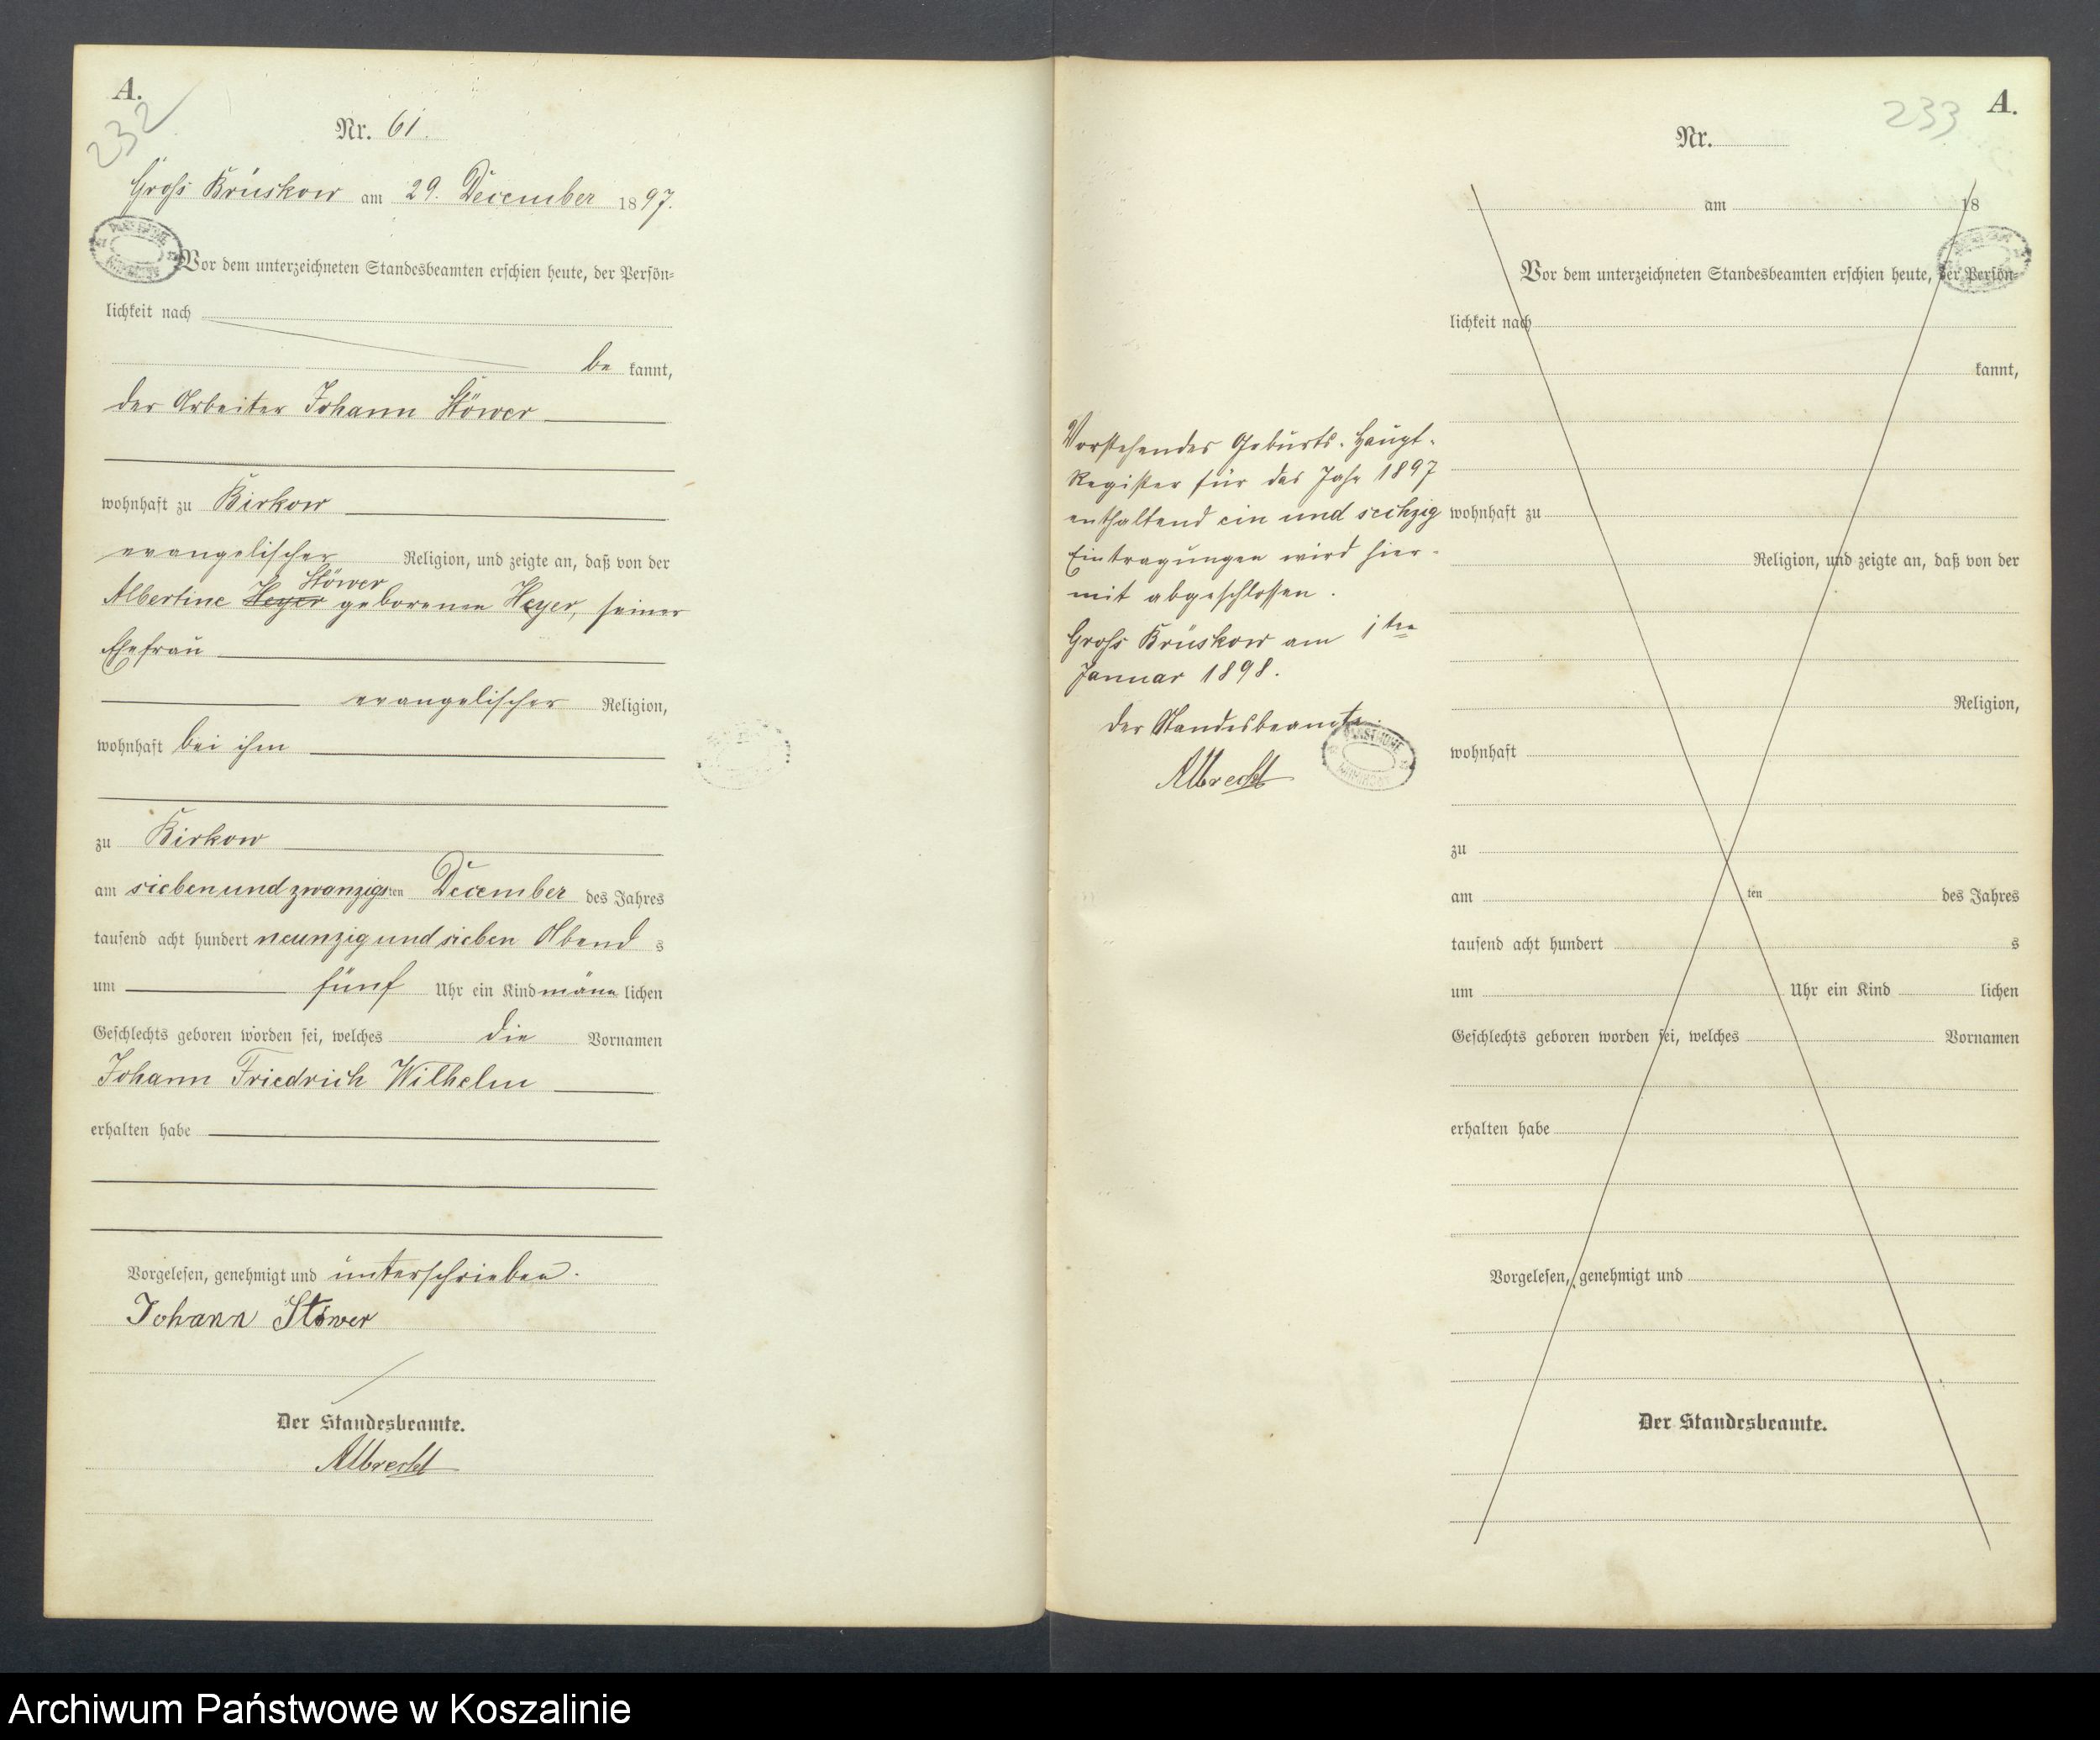 A.
232
Nr. 61.
Groß Brüskow am 29. December 1897.
Vor dem unterzeichneten Standesbeamten erschien heute, der Persön=
lichkeit nach
be kannt,
der Arbeiter Johann Stöwer
wohnhaft zu Birkow
evangelischer Religion, und zeigte an, daß von der
Stöwer
Albertine Heyer geborenen Heyer, seiner
Ehefrau
evangelischer Religion,
wohnhaft bei ihm
zu Birkow
am siebenundzwanzigsten December des Jahres
tausend acht hundert neunzig und sieben Abend s
um fünf Uhr ein Kind männ lichen
Geschlechts geboren worden sei, welches die Vornamen
Johann Friedrich Wilhelm
erhalten habe
Vorgelesen, genehmigt und unterschrieben.
Johann Stöwer
Der Standesbeamte.
Albrecht
Vorstehendes Geburts-Haupt-
Register für das Jahr 1897
enthaltend ein und sechzig
Eintragungen wird hier-
mit abgeschlossen.
Groß Brüskow am 1ten
Januar 1898.
Der Standesbeamte.
Albrecht
233
A.
Nr.
am 18
Vor dem unterzeichneten Standesbeamten erschien heute, der Persön=
lichkeit nach
kannt,
wohnhaft zu
Religion, und zeigte an, daß von der
Religion,
wohnhaft
zu
am ten des Jahres
tausend acht hundert s
um Uhr ein Kind lichen
Geschlechts geboren worden sei, welches Vornamen
erhalten habe
Vorgelesen, genehmigt und
Der Standesbeamte.
Archiwum Państwowe w Koszalinie